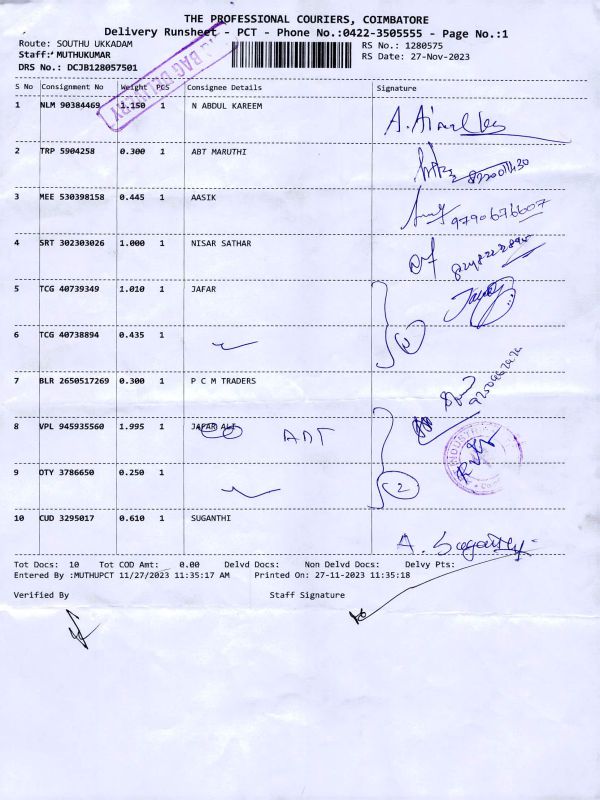 THE PROFESSIONAL COURIERS, COIMBATORE
Delivery Runsheet - PCT - Phone No.:0422-3505555 - Page No.:1
Route: SOUTHU UKKADAM RS No.: 1280575
Staff: MUTHUKUMAR RS Date: 27-Nov-2023
DRS No.: DCJB128057501
BAG DELIVERY
S No Consignment No Weight PCS Consignee Details Signature
1 NLM 90384469 1.150 1 N ABDUL KAREEM
2 TRP 5904258 0.300 1 ABT MARUTHI
3 MEE 530398158 0.445 1 AASIK 9790676607
4 SRT 302303026 1.000 1 NISAR SATHAR
5 TCG 40739349 1.010 1 JAFAR
6 TCG 40738894 0.435 1
7 BLR 2650517269 0.300 1 P C M TRADERS
8 VPL 945935560 1.995 1 JAFAR ALI
9 DTY 3786650 0.250 1 2
10 CUD 3295017 0.610 1 SUGANTHI A.
Tot Docs: 10 Tot COD Amt: 0.00 Delvd Docs: Non Delvd Docs: Delvy Pts:
Entered By :MUTHUPCT 11/27/2023 11:35:17 AM Printed On: 27-11-2023 11:35:18
Verified By Staff Signature